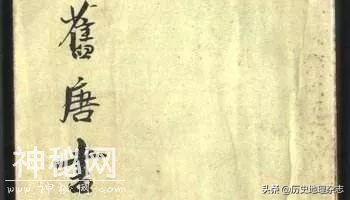 舊唐書
神秘网
头条 @历史地理杂志